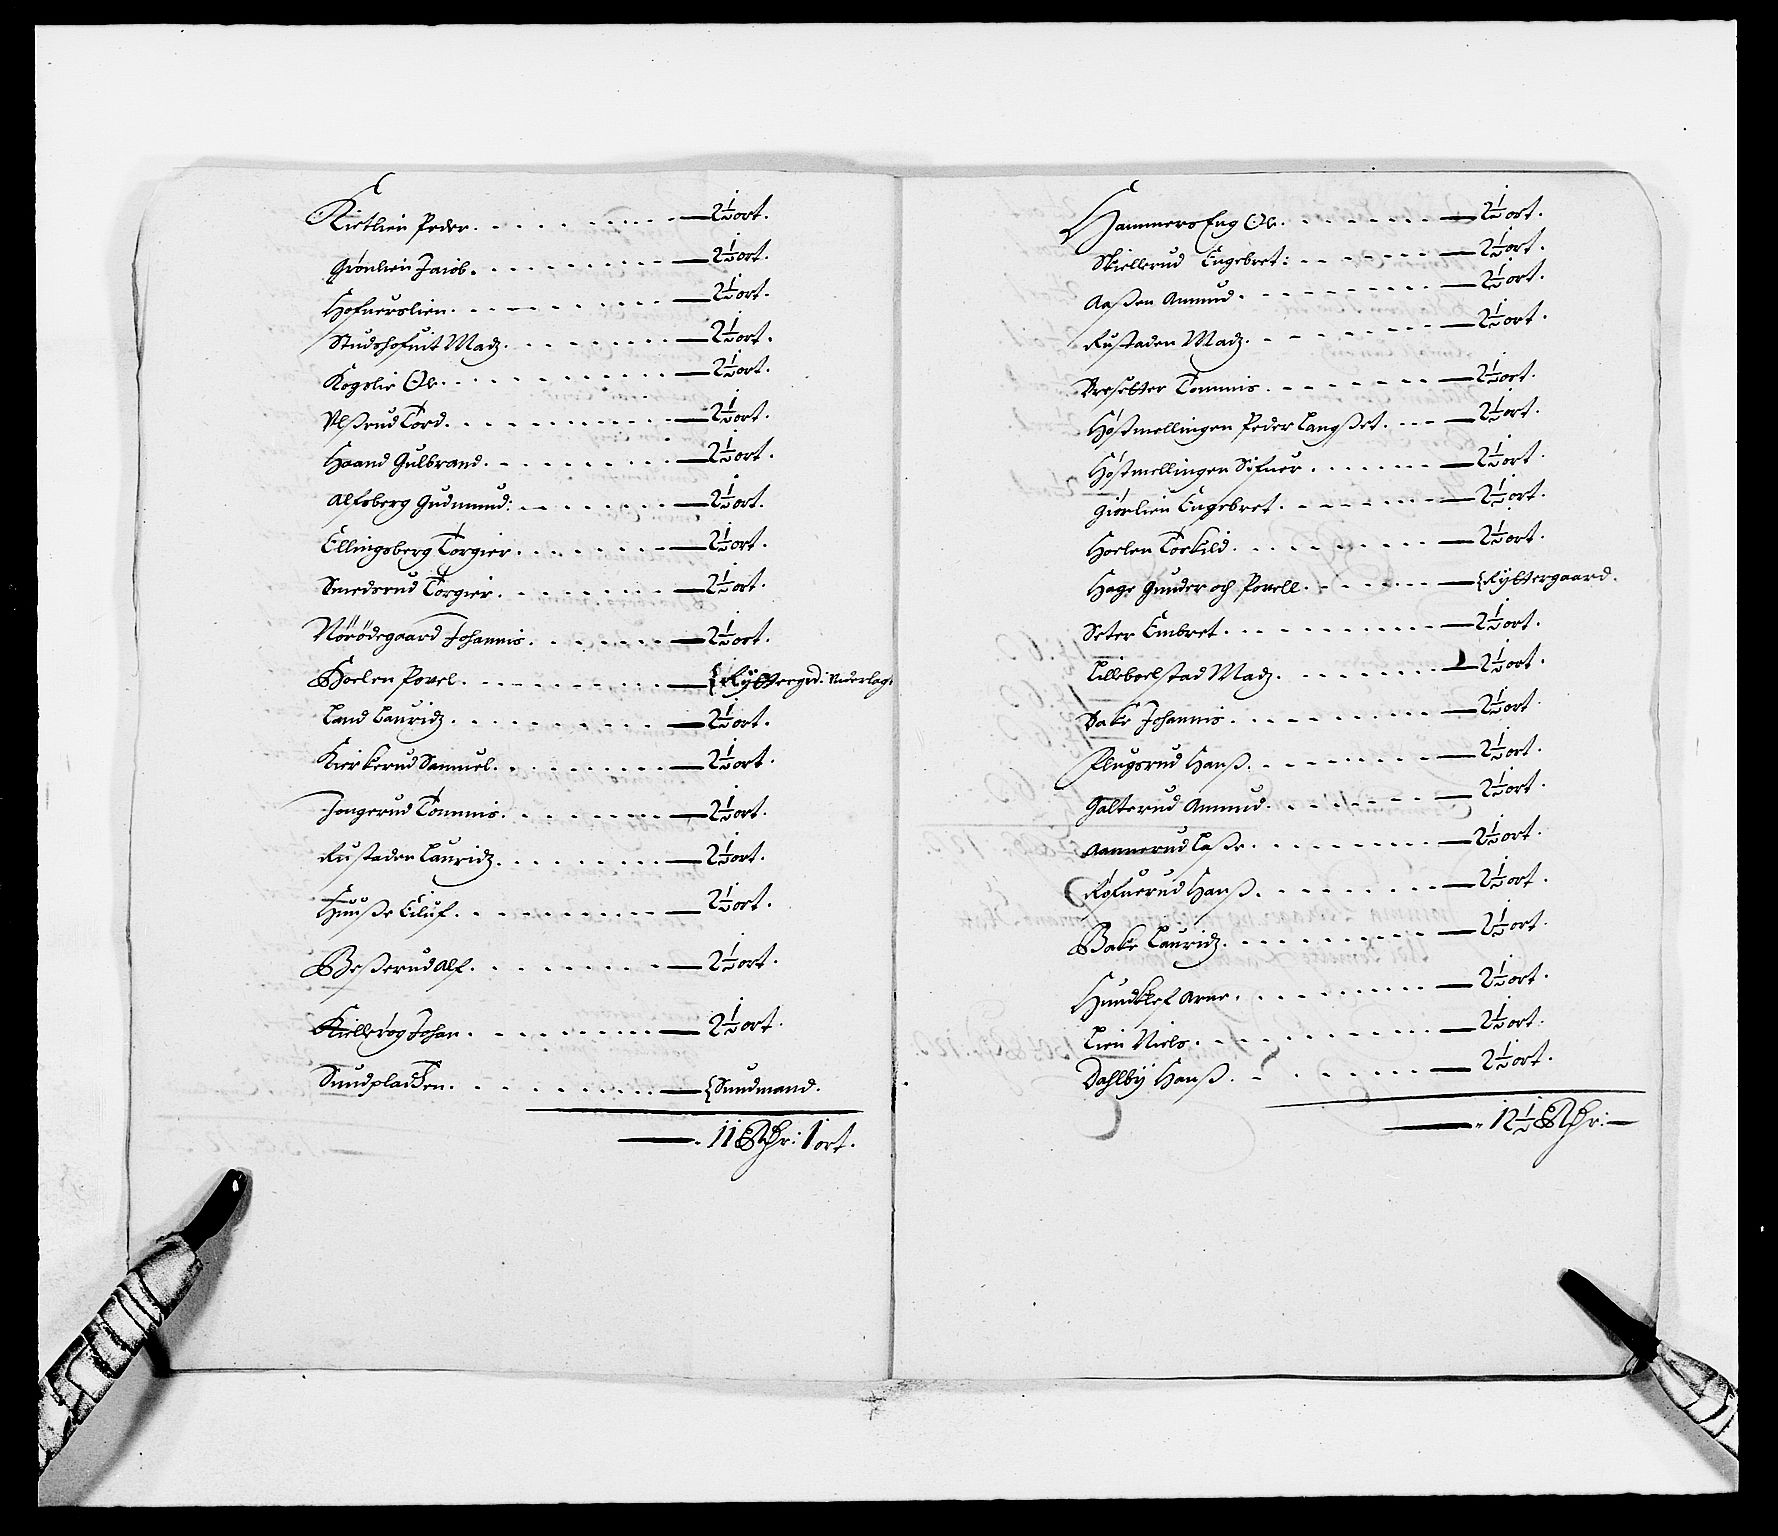 Kietlien Peder. — 2½ ort.
Grönlien Jacob. — 2½ ort.
Hofuerslien. — 2½ ort.
Studshofuit Madz. — 2½ ort.
Kogslie Ole. — 2½ ort.
Ulßrud Tord. — 2½ ort.
Haand Gulbrand. — 2½ ort.
Alfsberg Gudmund: — 2½ ort.
Ellingsberg Torgier. — 2½ ort.
Smedsrud Torgier. — 2½ ort.
Nörödegaard Johannis. — 2½ ort.
Hoelen Povel. — {Ryttergrd: Underlag.
Land Lauridz. — 2½ ort.
Kierkerud Samuel. — 2½ ort.
Jongerud Tommis. — 2½ ort.
Rustaden Lauridz. — 2½ ort.
Huuße Eiluf. — 2½ ort.
Beßerud Alf. — 2½ ort.
Johan. — 2½ ort.
Sundplatzen. — {Sundmand.
— 11 Rdr: 1 ort.
Hammers Eng Ole. — 2½ ort.
Skiellerud Engebret: — 2½ ort.
Aaßen Amund. — 2½ ort.
Rustaden Madz. — 2½ ort.
Bresetter Tommis. — 2½ ort.
Höstmellingen Peder Langßet. — 2½ ort.
Höstmellingen Sifuer. — 2½ ort.
Giörlien Engebret. — 2½ ort.
Hoelen Torkild. — 2½ ort.
Hage Gunder och Povell. — {Ryttergaard.
Seter Embret. — 2½ ort.
Lillebolstad Madz. — 2½ ort.
Bake Johannis. — 2½ ort.
Plugsrud Hanß. — 2½ ort.
Galterud Amund. — 2½ ort.
Aannerud Laße. — 2½ ort.
Rofuerud Hanß. — 2½ ort.
Bake Lauridz. — 2½ ort.
Arne. — 2½ ort.
Lien Niels. — 2½ ort.
Dahlbÿ Hanß. — 2½ ort.
— 12½ Rdr: —